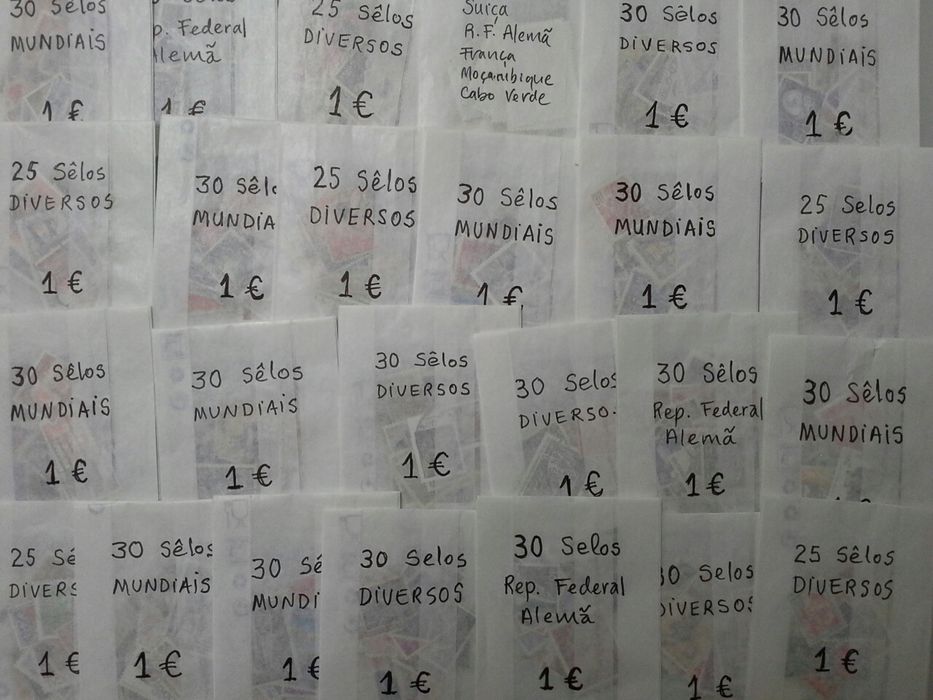 30 Sêlos
MUNDIAIS
1 €
p. Federal
lemã
1 €
25 Sêlos
DIVERSOS
1 €
Suiça
R.F. Alemã
França
Moçambique
Cabo Verde
30 Sêlos
DIVERSOS
1 €
30 Sêlos
MUNDIAIS
1 €
25 Sêlos
DIVERSOS
1 €
30 Sêl
MUNDIA
1 €
25 Sêlos
DIVERSOS
1 €
30 Sêlos
MUNDIAIS
1 €
30 Sêlos
MUNDIAIS
1 €
25 Selos
DIVERSOS
1 €
30 Sêlos
MUNDIAIS
1 €
30 Sêlos
MUNDIAIS
1 €
30 Sêlos
DIVERSOS
1 €
30 Selos
DIVERSO
1 €
30 Sêlos
Rep. Federal
Alemã
1 €
30 Sêlos
MUNDIAIS
25 Sê
DIVERS
1 €
30 Sêlos
MUNDIAIS
1 €
30 Sê
MUNDI
1 €
30 Selos
DIVERSOS
1 €
30 Selos
Rep. Federal
Alemã
1 €
30 Selos
DIVERSOS
1 €
25 Sêlos
DIVERSOS
1 €